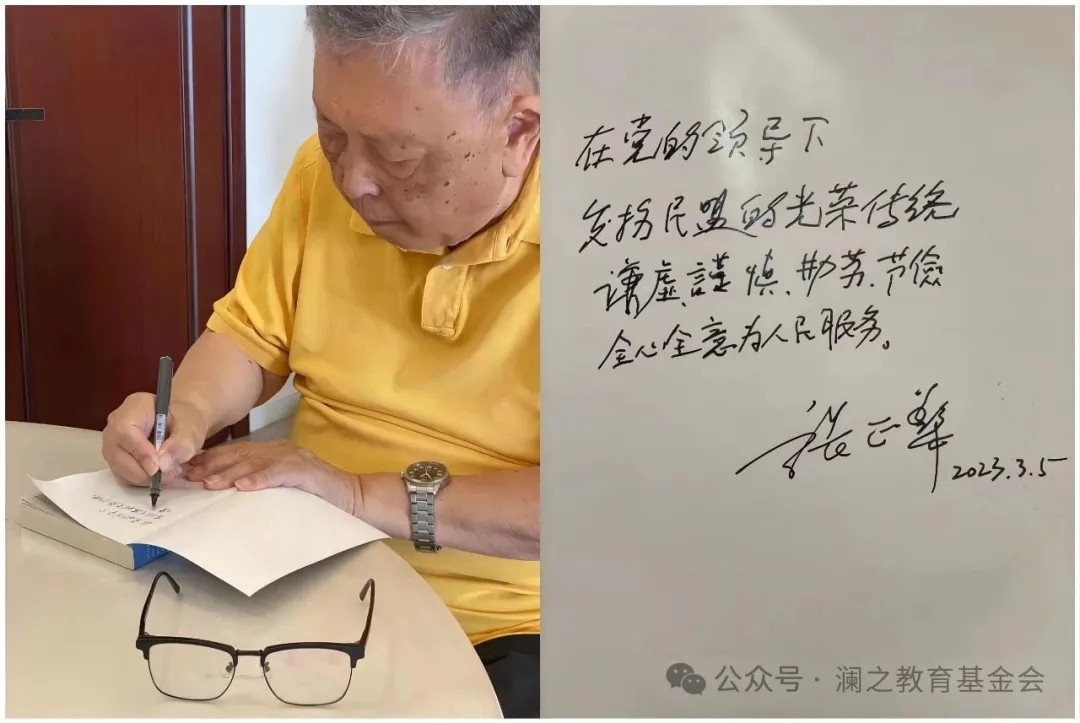 在党的领导下
发扬民盟的光荣传统
谦虚、謹慎、勤劳、节儉
全心全意为人民服务。
2023.3.5
公众号·澜之教育基金会